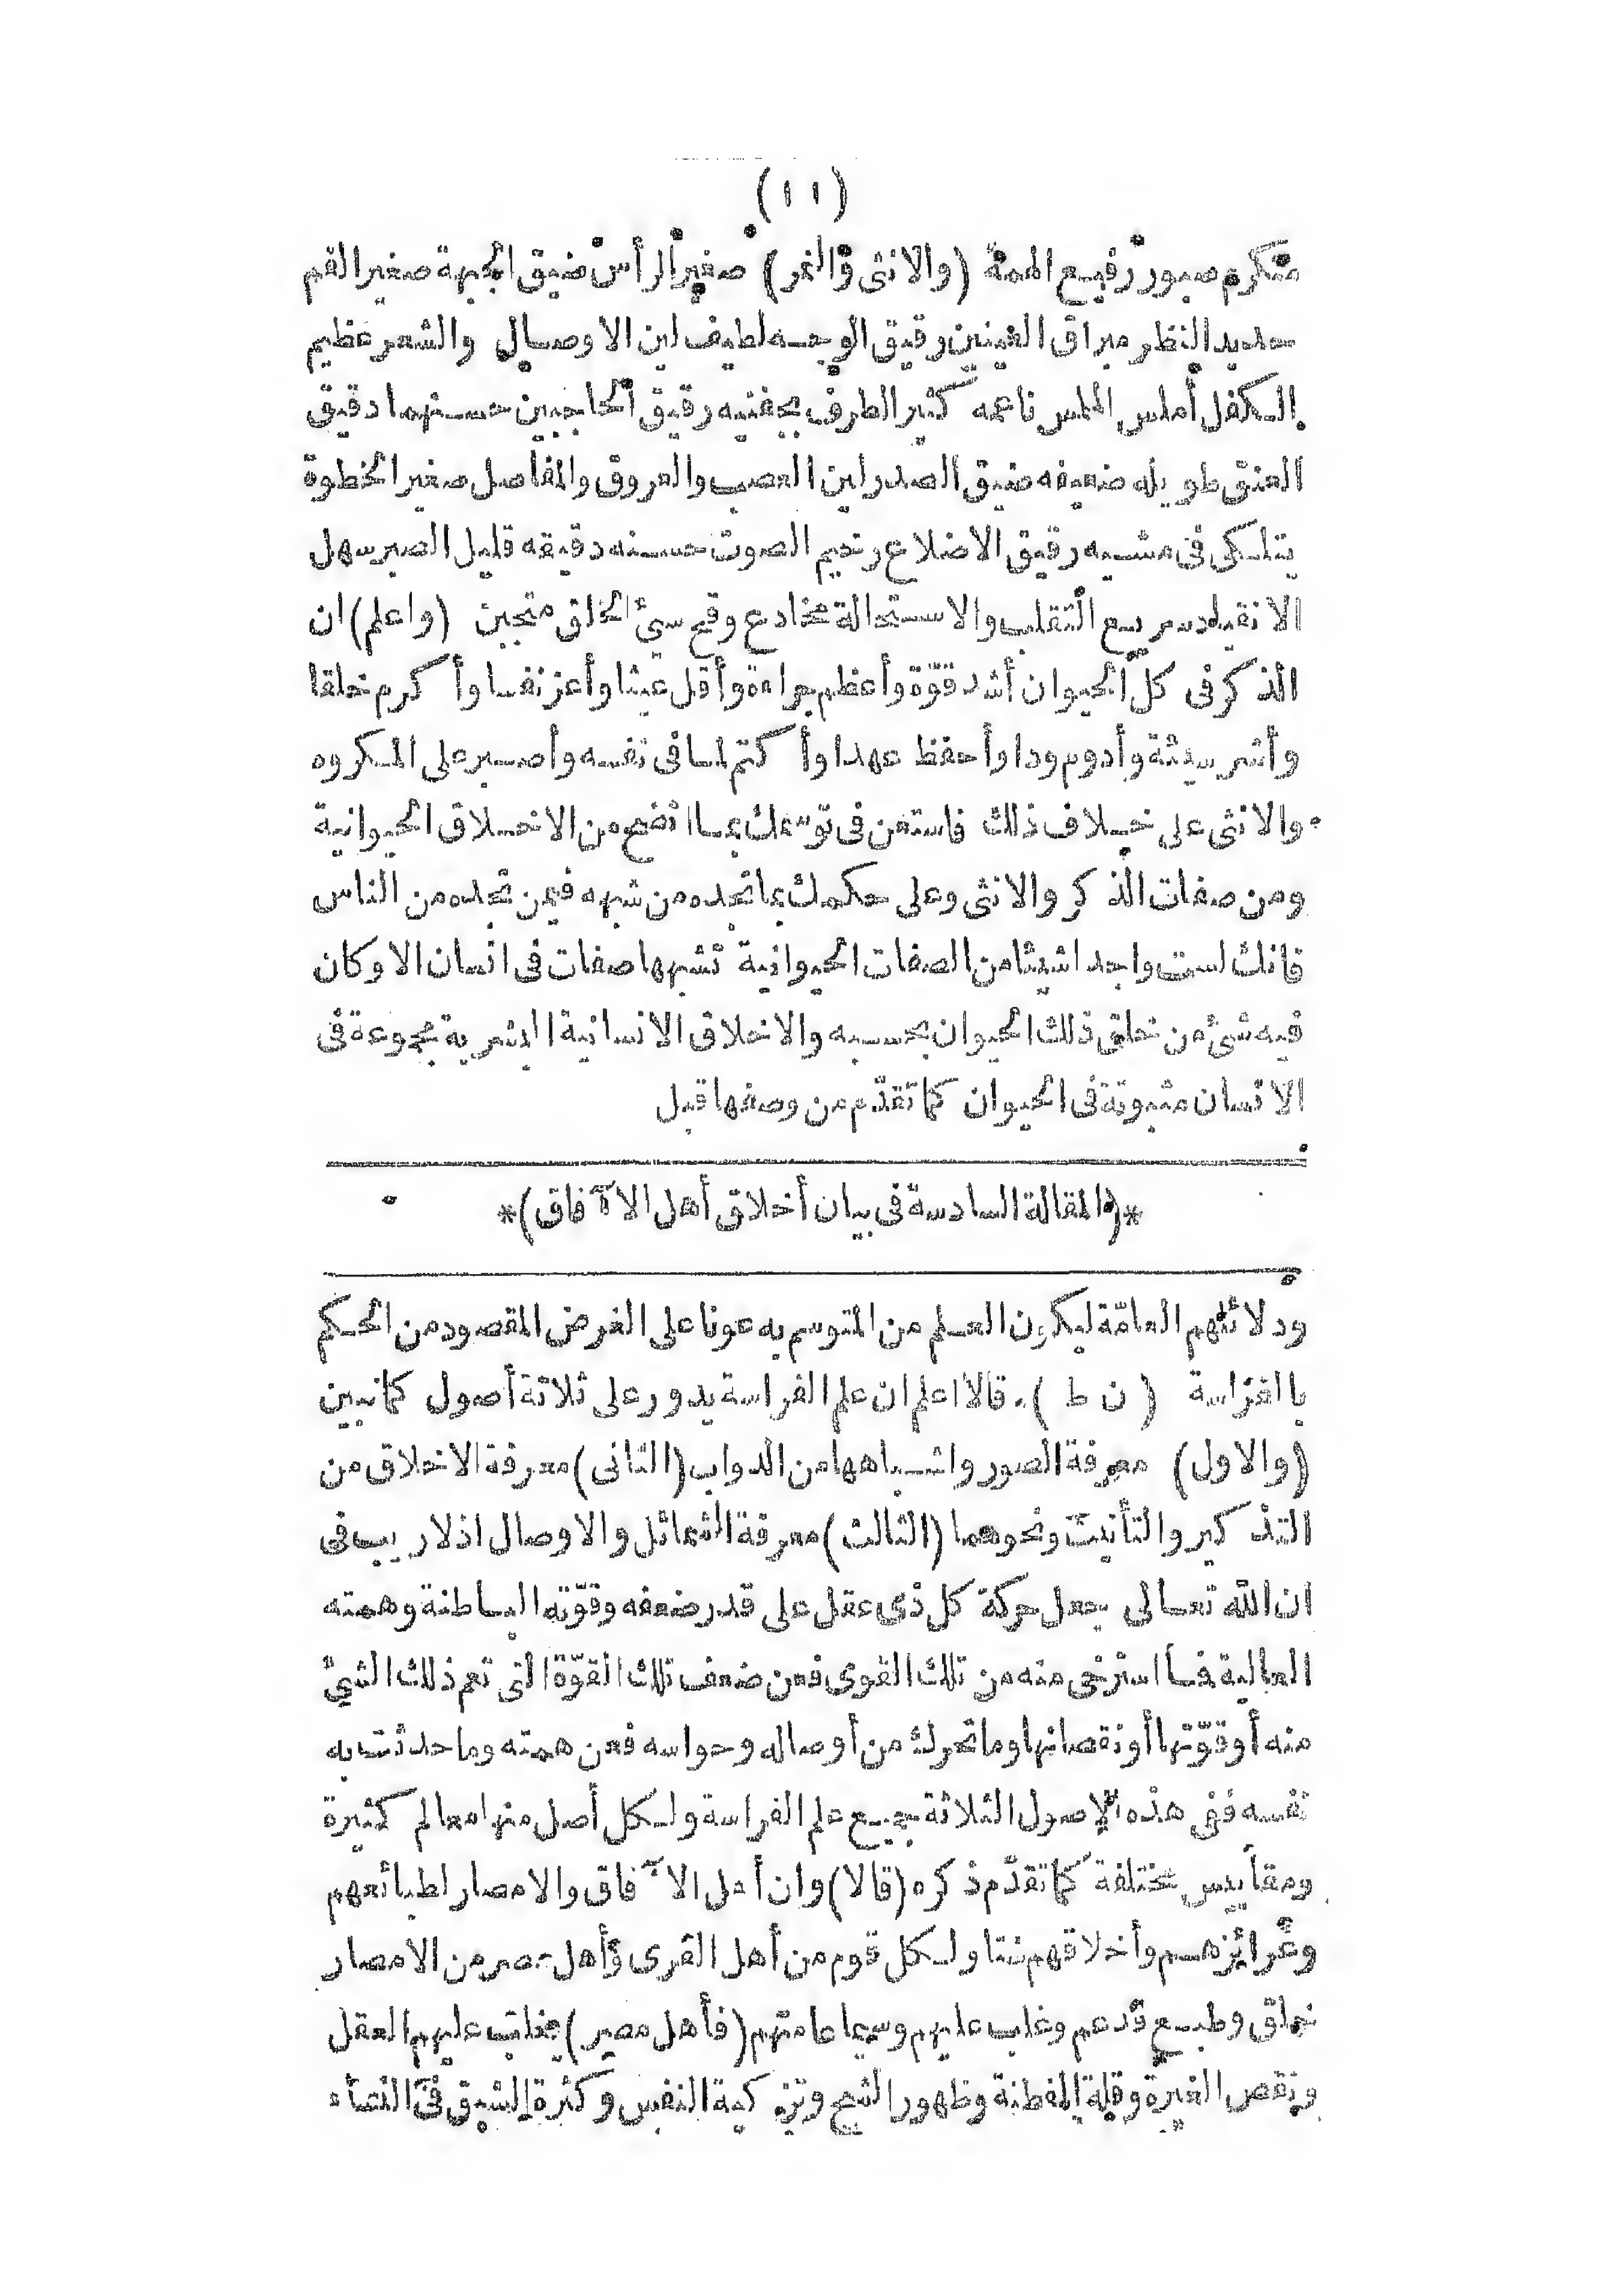 (١١)
متكرم صبور رفيع الهمة (والانثى والنمر) صغير الرأس ضيق الجبهة صغير الفم
حديد النظر براق العينين رقيق الوجه لطيف لين الاوصال والشعر عظيم
الكفل أملس الملمس ناعمه كثير الطرف بجفنيه رقيق الحاجبين حسنهما دقيق
العنق طويله ضعيفه ضيق الصدر لين العصب والعروق والمفاصل صغير الخطوة
يتلكى فى مشيه رقيق الاضلاع رخيم الصوت حسنه دقيقه قليل الصبر سهل
الانقياد سريع التقلب والاستحالة مخادع وقح سيئ الخلق متجبن (واعلم) ان
الذكر فى كل الحيوان أشد قوّة وأعظم جراءة وأقل عبثا وأعز نفسا وأكرم خلقا
وأشر سيئة وأدوم ودا وأحفظ عهدا وأكتم لما فى نفسه وأصبر على المكروه
والانثى على خلاف ذلك فاستعن فى توسمك بما اتضح من الاخلاق الحيوانية
ومن صفات الذكر والانثى وعلى حكمك بما تجده من شبه فيمن تجده من الناس
فانك لست واجدا شيئا من الصفات الحيوانية تشبهها صفات فى انسان الا وكان
فيه شئ من خلق ذلك الحيوان بحسبه والاخلاق الانسانية البشرية مجموعة فى
الانسان مثبوتة فى الحيوان كما تقدّم من وصفها قبل
*(المقالة السادسة فى بيان أخلاق أهل الآفاق)*
ودلائلهم العامّة ليكون العلم من المتوسم به عونا على الغرض المقصود من الحكم
بالفراسة (ن ط). قالا اعلم ان علم الفراسة يدور على ثلاثة أصول كما نبين
(والاول) معرفة الصور واشباهها من الدواب (الثانى) معرفة الاخلاق من
التذكير والتأنيث ونحوهما (الثالث) معرفة الشمائل والاوصال اذ لا ريب فى
ان الله تعالى جعل حركة كل ذى عقل على قدر ضعفه وقوّته الباطنة وهمته
العالية فما استرخى منه من تلك القوى فمن ضعف تلك القوّة التى تعم ذلك الشئ
منه أو قوّتها أو نقصانها وما تحرك من أوصاله وحواسه فعن همته وما حدثت به
نفسه ففى هذه الاصول الثلاثة جميع علم الفراسة ولكل أصل منها معالم كثيرة
ومقاييس مختلفة كما تقدّم ذكره (قالا) وان أهل الآفاق والامصار لطبائعهم
وغرائزهم وأخلاقهم نتا ولكل قوم من أهل القرى وأهل مصر من الامصار
خلق وطبع قد عم وغلب عليهم وسيما عامتهم (فأهل مصر) يغلب عليهم العقل
ونقص الغيرة وقلة الفطنة وظهور الشح وتزكية النفس وكثرة الشبق فى النساء